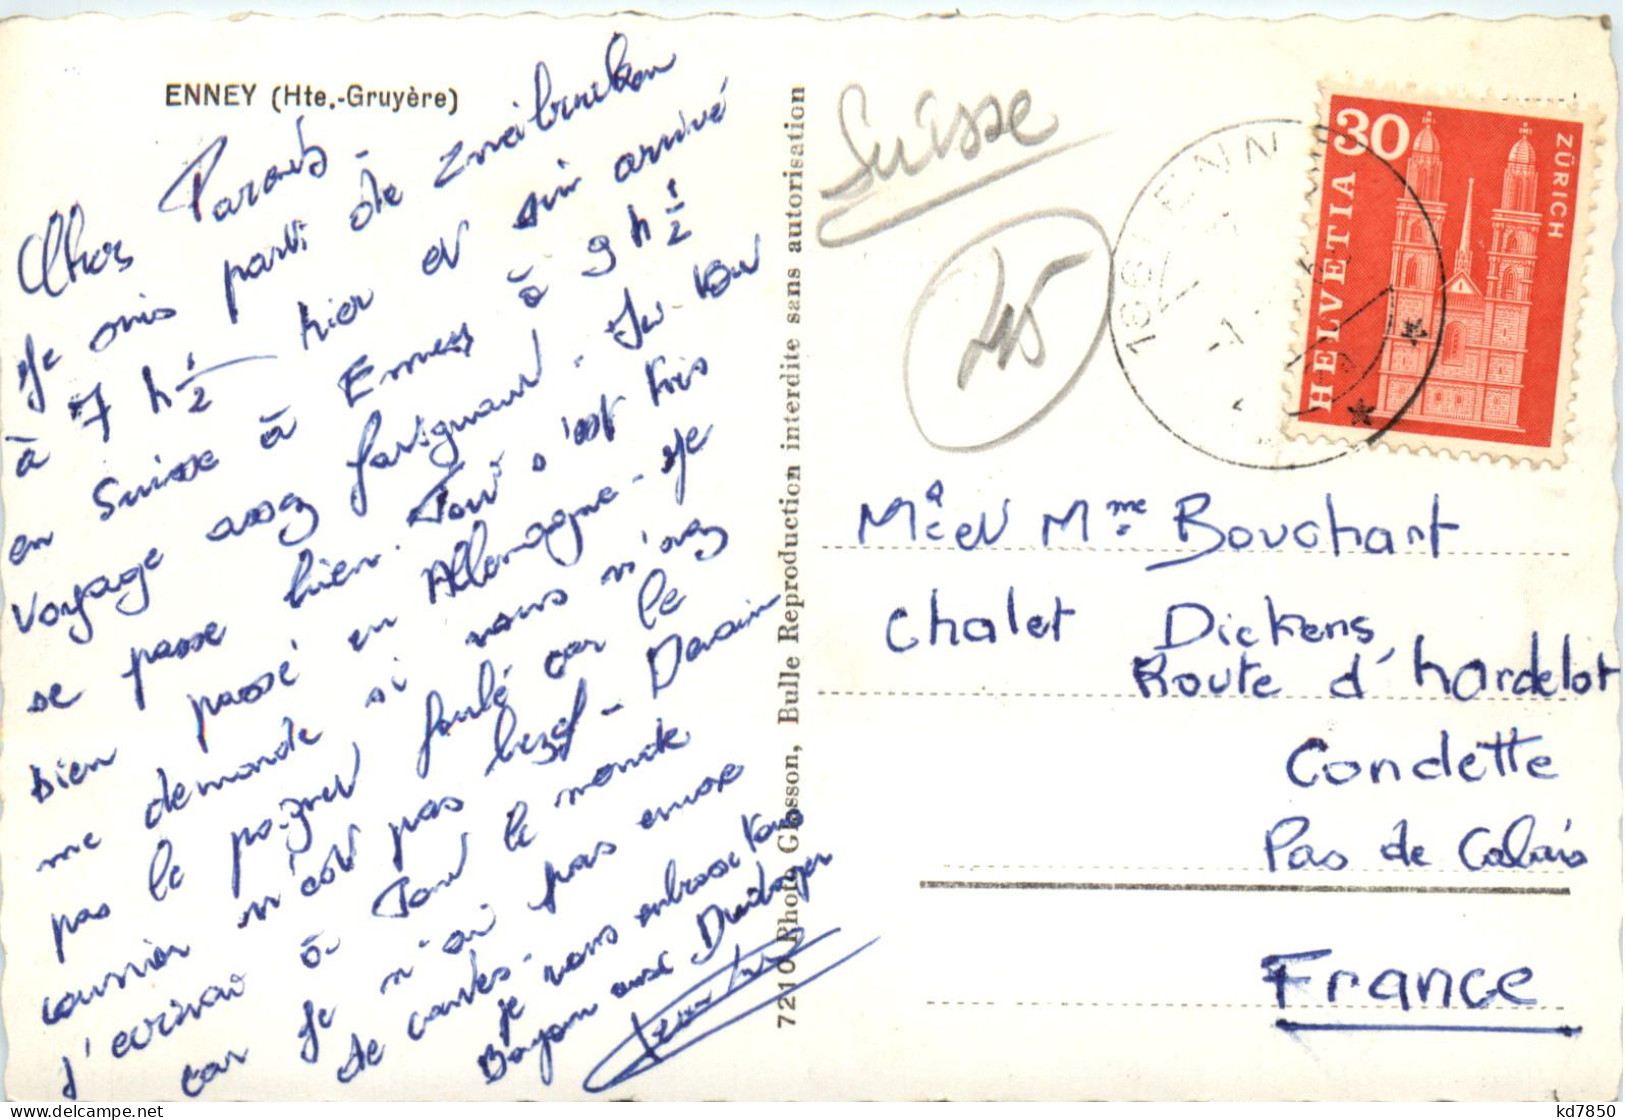 ENNEY (Hte.-Gruyère)
Chers Parents -
Je suis parti de Zweibrucken
à 7 h 1/2 hier et suis arrivé
en Suisse à Enney à 9 h 1/2
Voyage assez fatiguant.
se passe bien. Tout s'est très
bien passé en Allemagne - Je
me demande si vous n'avez
pas le poignet foulé car le
courrier n'est pas bezef - Demain
j'écrirai à Tout le monde
car je n'ai pas encore
de cartes - je vous embrasse tous
7210 Photo Glasson, Bulle Reproduction interdite sans autorisation
Suisse
45
1661 ENNEY
30
HELVETIA
ZÜRICH
Mr et Mme Bouchart
Chalet Dickens
Route d'hardelot
Condette
Pas de Calais
France
kd7850